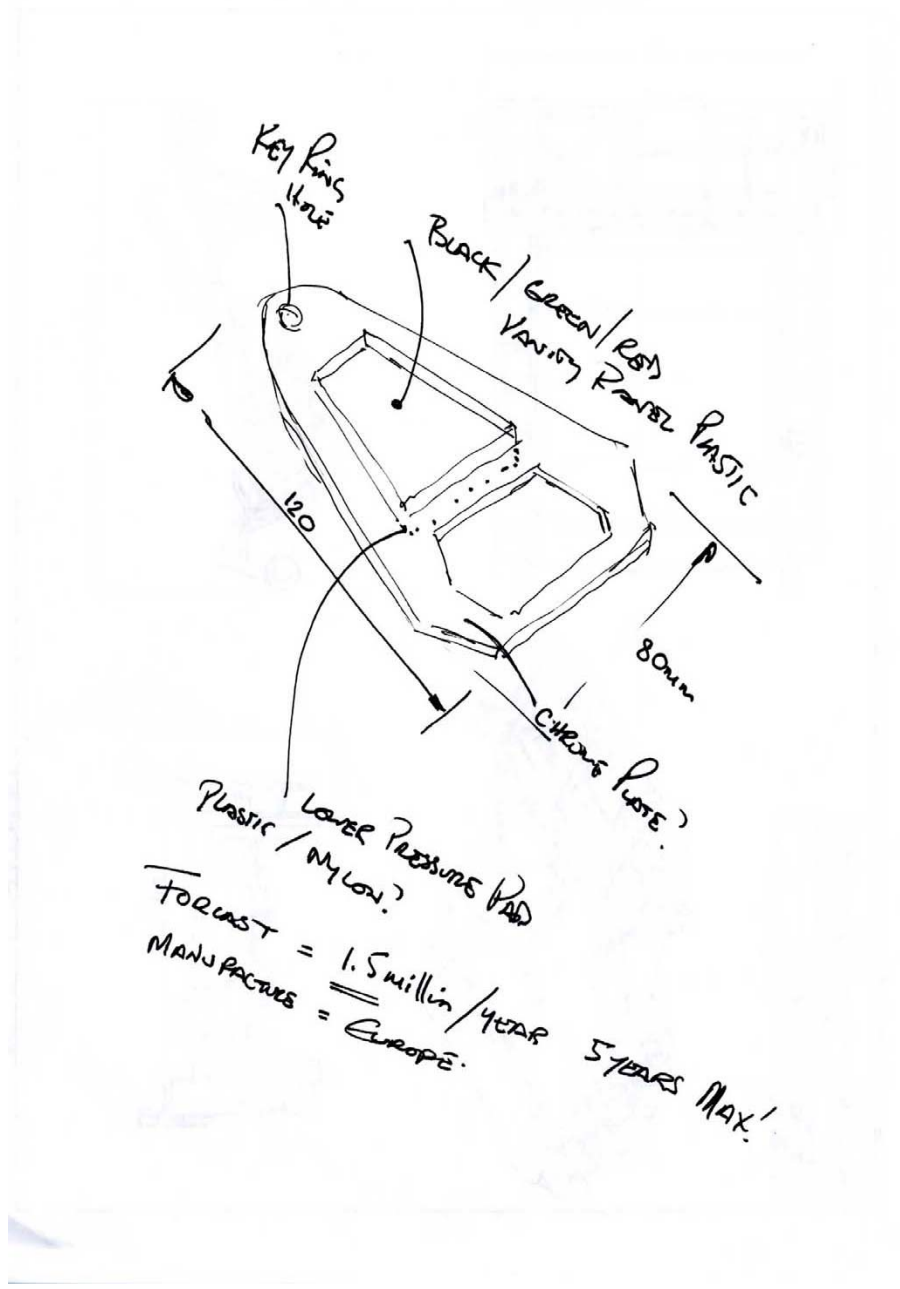 KEY RING
HOLE
BLACK/GREEN/RED
VANITY PANEL PLASTIC
120
80mm
CHROME PLATE?
LOWER PRESSURE PAD
PLASTIC/NYLON?
FORCAST = 1.5 millin/YEAR 5 YEARS MAX!
MANUFACTURE = EUROPE.